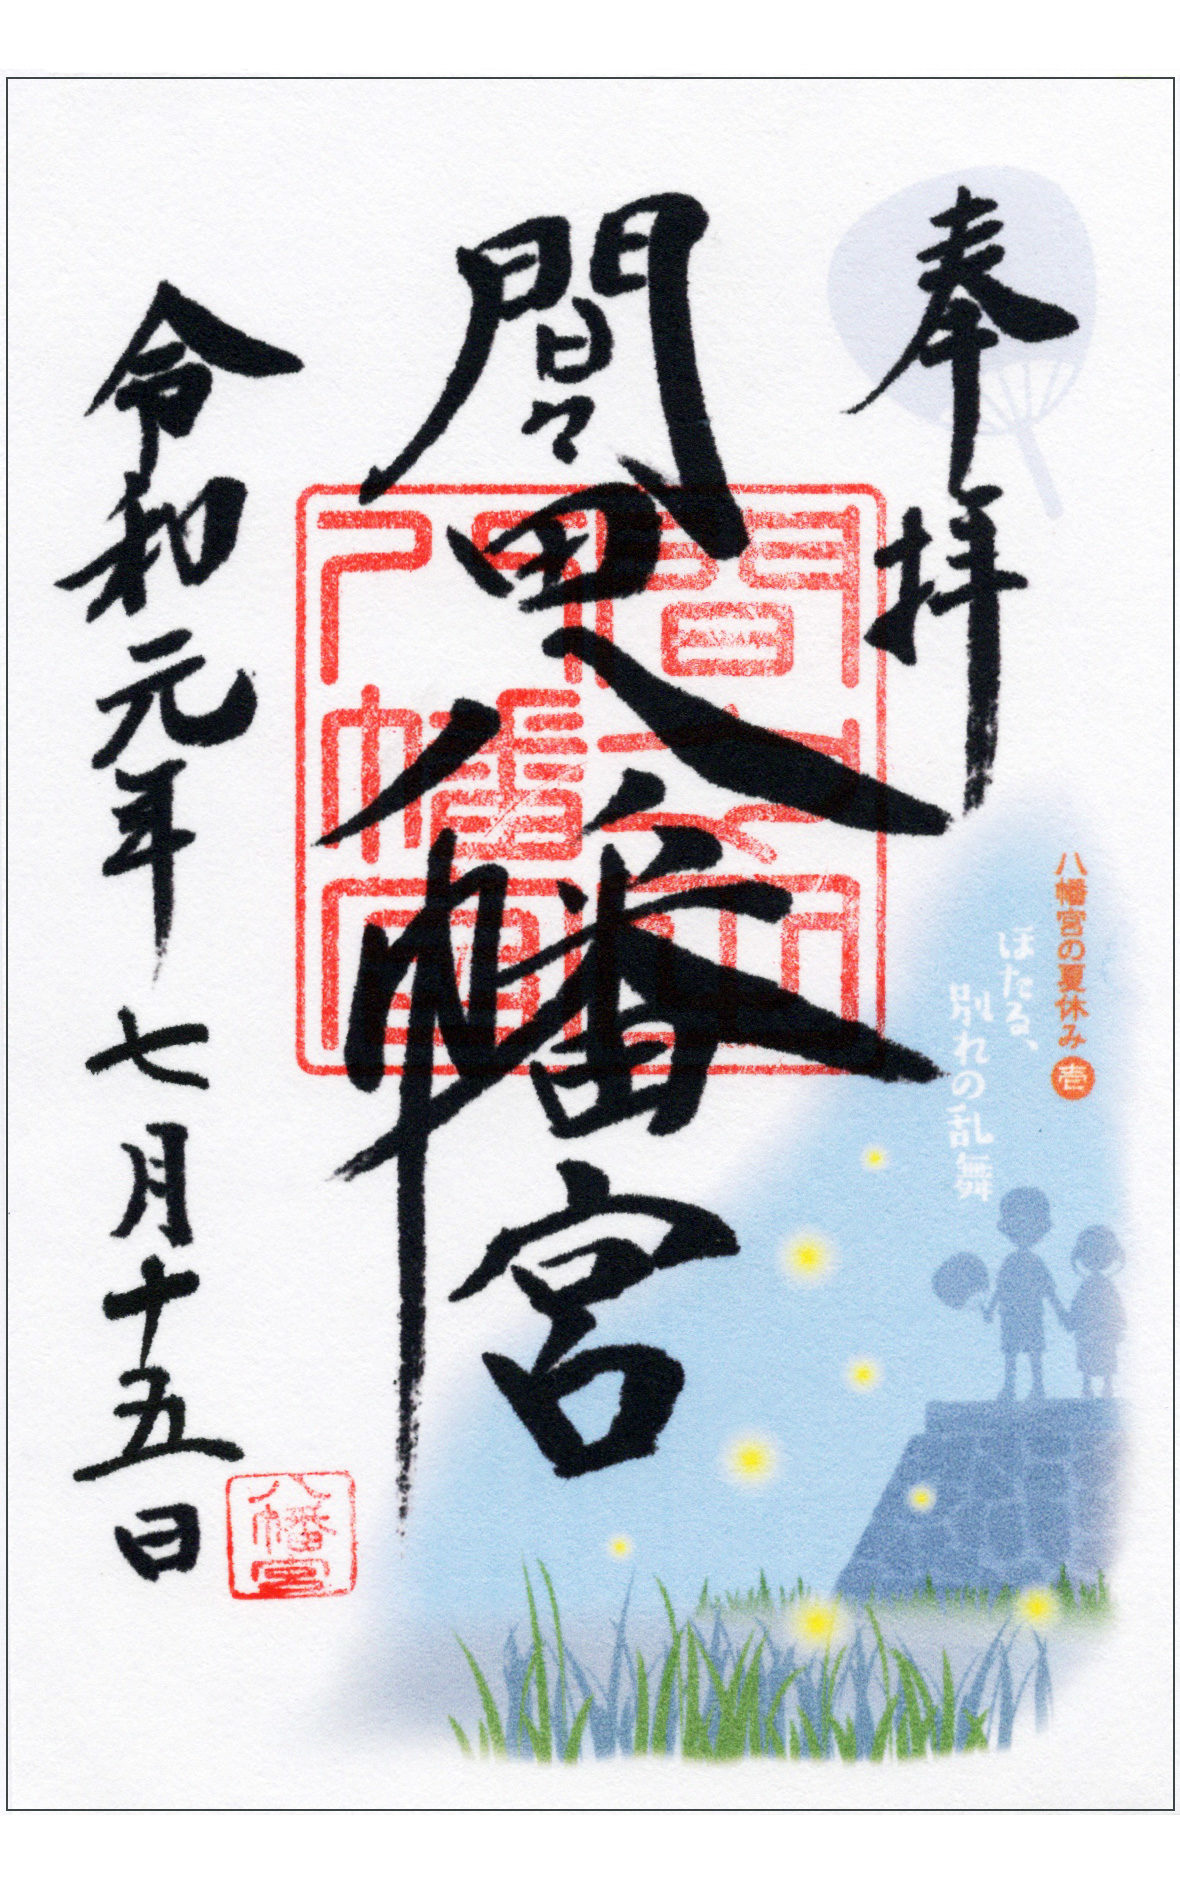 奉拝
八幡宮の夏休み 壱
ほたる、
別れの乱舞
間々田八幡宮
間々田八幡宮
令和元年七月十五日
八幡宮